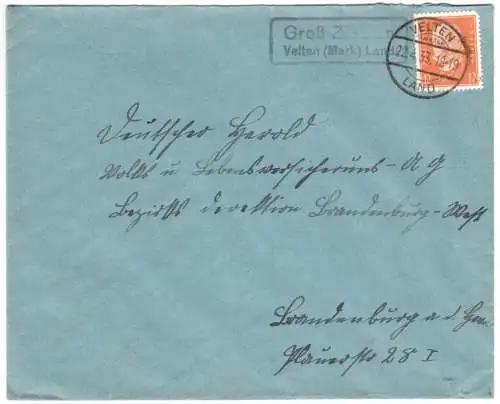 Groß
Velten (Mark) Land
VELTEN
LAND
Deutscher Herold
Volks u Lebensversicheruns-AG
Bezirks direktion Brandenburg-West
Brandenburg a. d.
Plauerstr 28 I